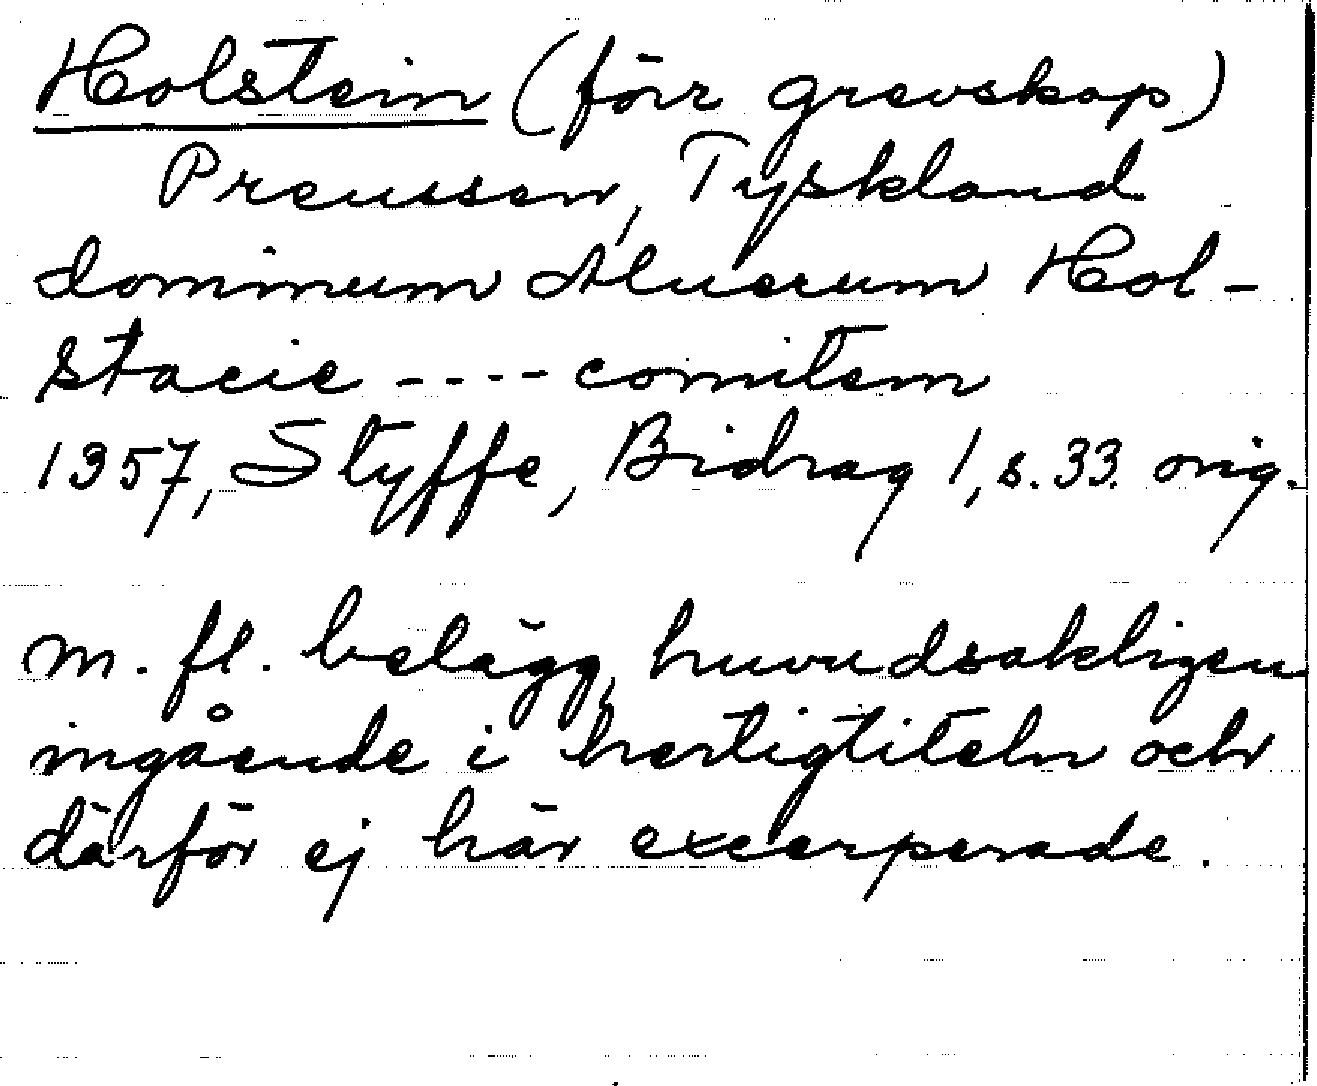 Holstein (förr grevskap)
Preussen, Tyskland
dominum Aluerum Hol-
stacie ---- comitem
1357, Styffe, Bidrag 1, s. 33. orig.
m. fl. belägg, huvudsakligen
ingående i hertigtiteln och
därför ej här excerperade.